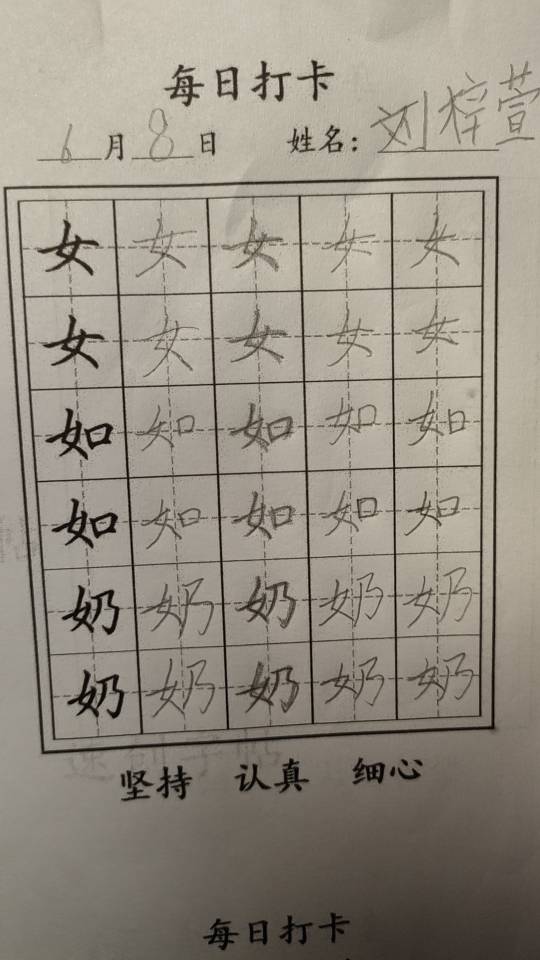 每日打卡
6月8日 姓名：刘梓萱
女女女女女
女女女女女
如如如如如
如如如如如
奶奶奶奶奶
奶奶奶奶奶
坚持 认真 细心
每日打卡